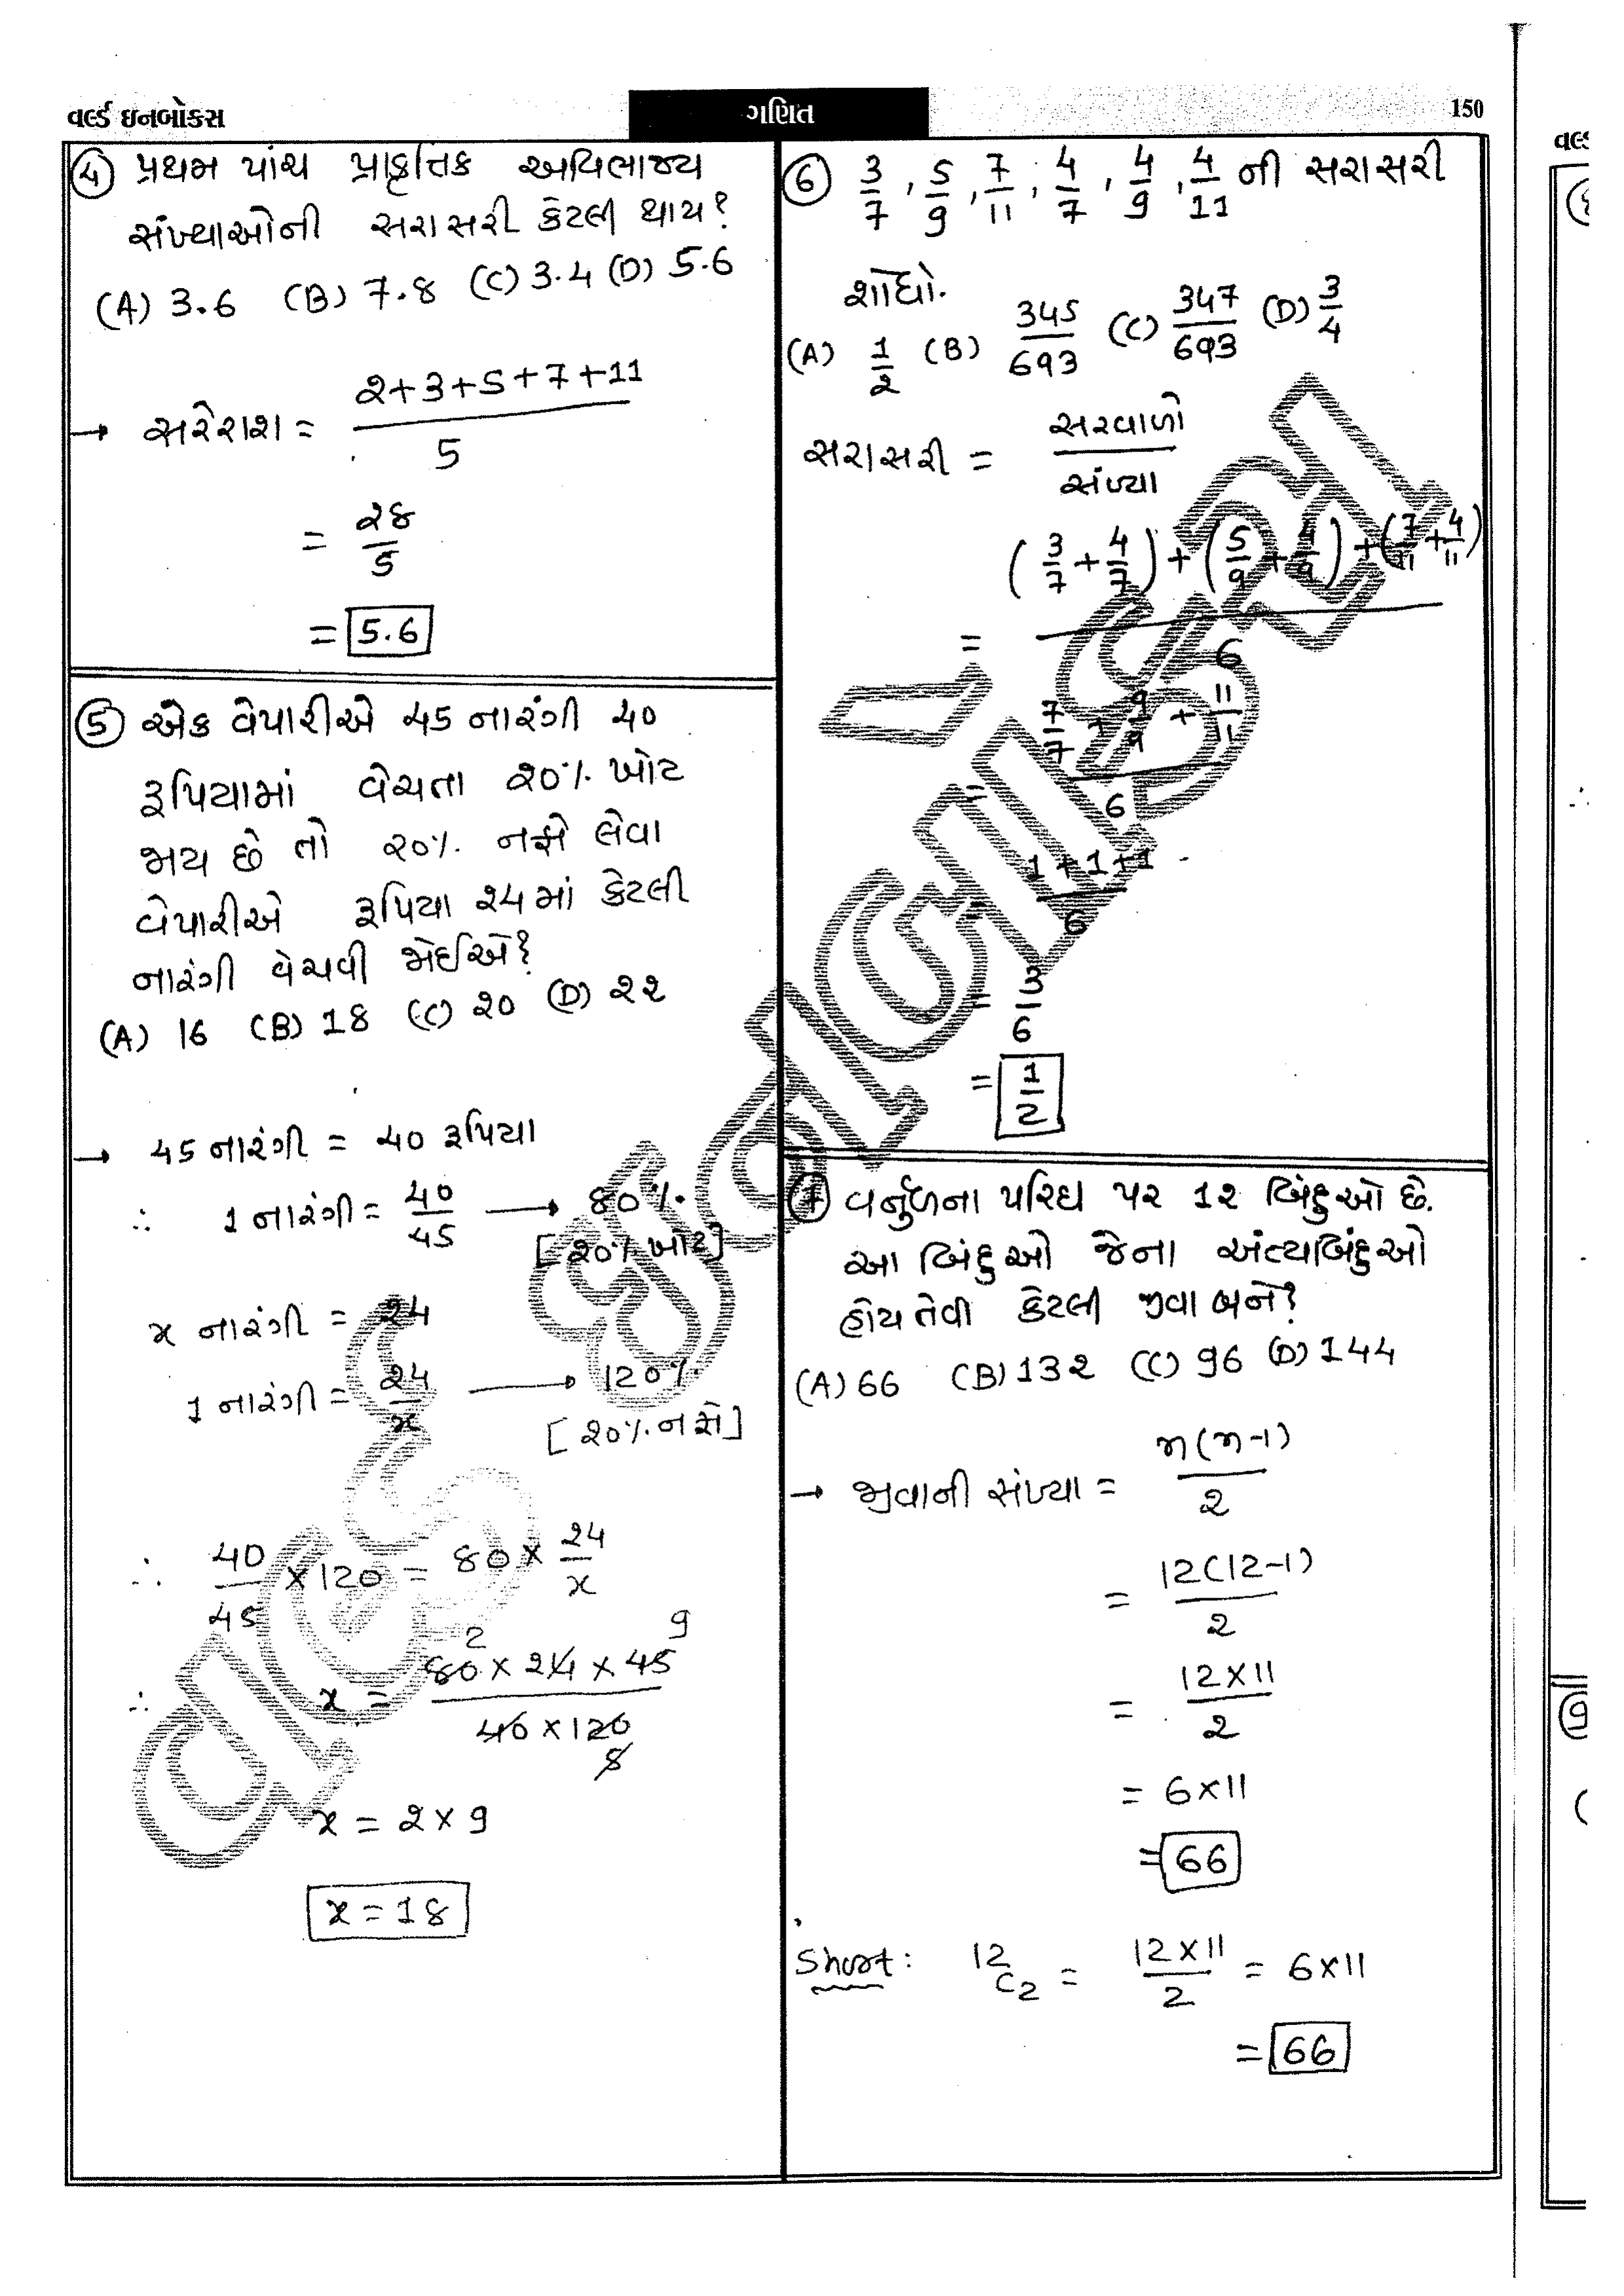 વર્લ્ડ ઇનબોક્સ
ગણિત
150
④ પ્રથમ પાંચ પ્રાકૃત્તિક અવિભાજ્ય
સંખ્યાઓની સરાસરી કેટલી થાય?
(A) 3.6 (B) 7.8 (C) 3.4 (D) 5.6
→ સરેરાશ = (2+3+5+7+11)/5
= 28/5
= 5.6
⑤ એક વેપારીએ 45 નારંગી 40
રૂપિયામાં વેચતા 20% ખોટ
જાય છે તો 20% નફો લેવા
વેપારીએ રૂપિયા 24માં કેટલી
નારંગી વેચવી જોઈએ?
(A) 16 (B) 18 (C) 20 (D) 22
→ 45 નારંગી = 40 રૂપિયા
∴ 1 નારંગી = 40/45 → 80%
[20% ખોટ]
x નારંગી = 24
1 નારંગી = 24/x → 120%
[20% નફો]
∴ 40/45 × 120 = 80 × 24/x
2 9
∴ x = (80 × 24 × 45)/(40 × 120)
x = 2 × 9
x = 18
⑥ 3/7, 5/9, 7/11, 4/7, 4/9, 4/11 ની સરાસરી
શોધો.
(A) 1/2 (B) 345/693 (C) 347/693 (D) 3/4
સરાસરી = સરવાળો/સંખ્યા
= ((3/7 + 4/7) + (5/9 + 4/9) + (7/11 + 4/11))/6
= (7/7 + 9/9 + 11/11)/6
= (1+1+1)/6
= 3/6
= 1/2
⑦ વર્તુળના પરિઘ પર 12 બિંદુઓ છે.
આ બિંદુઓ જેના અંત્યબિંદુઓ
હોય તેવી કેટલી જીવા બને?
(A) 66 (B) 132 (C) 96 (D) 144
→ જીવાની સંખ્યા = n(n-1)/2
= 12(12-1)/2
= 12×11/2
= 6×11
= 66
Short: 12C2 = 12×11/2 = 6×11
= 66